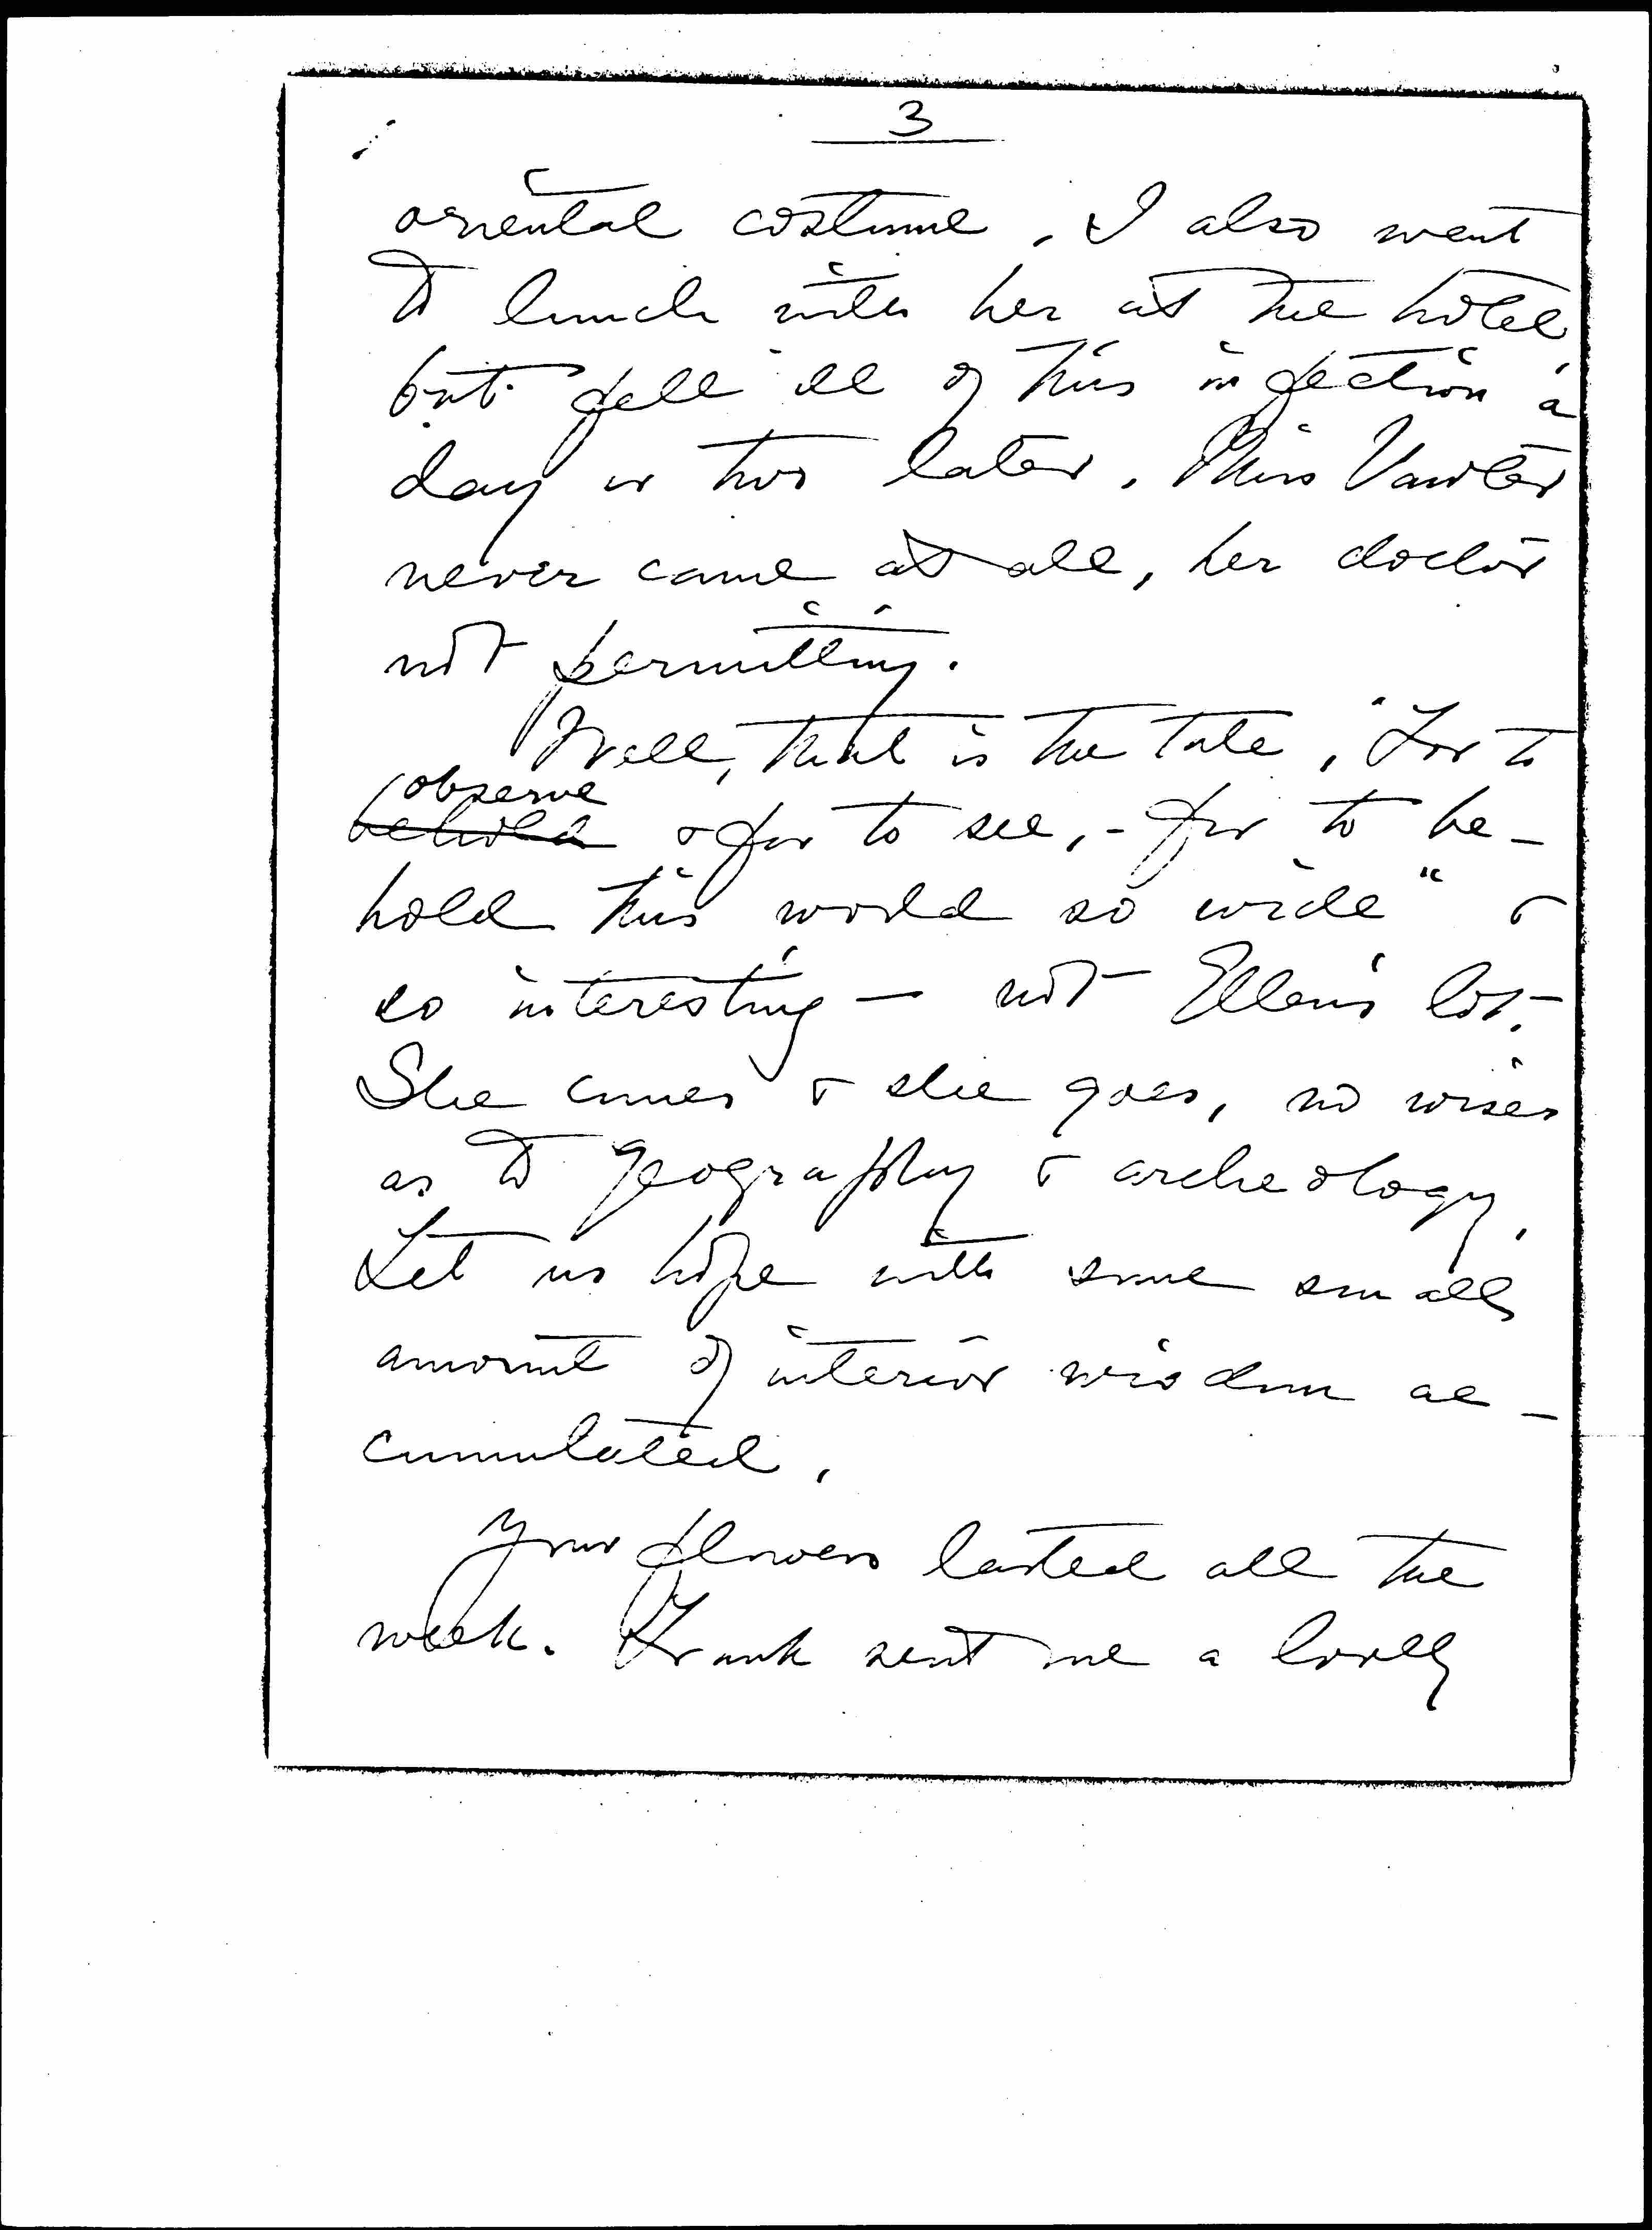 3
oriental costume. I also went
to lunch with her at the hotel,
but fell ill of this infection a
day or two later. Miss Vawter
never came at all, her doctor
not permitting.
Well, that is the tale, "For to
observe
behold & for to see, - for to be-
hold this world so wide" &
so interesting — not Ellen's lot.
She comes & she goes, no wiser
as to geography & archeology.
Let us hope with some small
amount of interior wisdom ac-
cumulated.
Your flowers lasted all the
week. Frank sent me a lovely